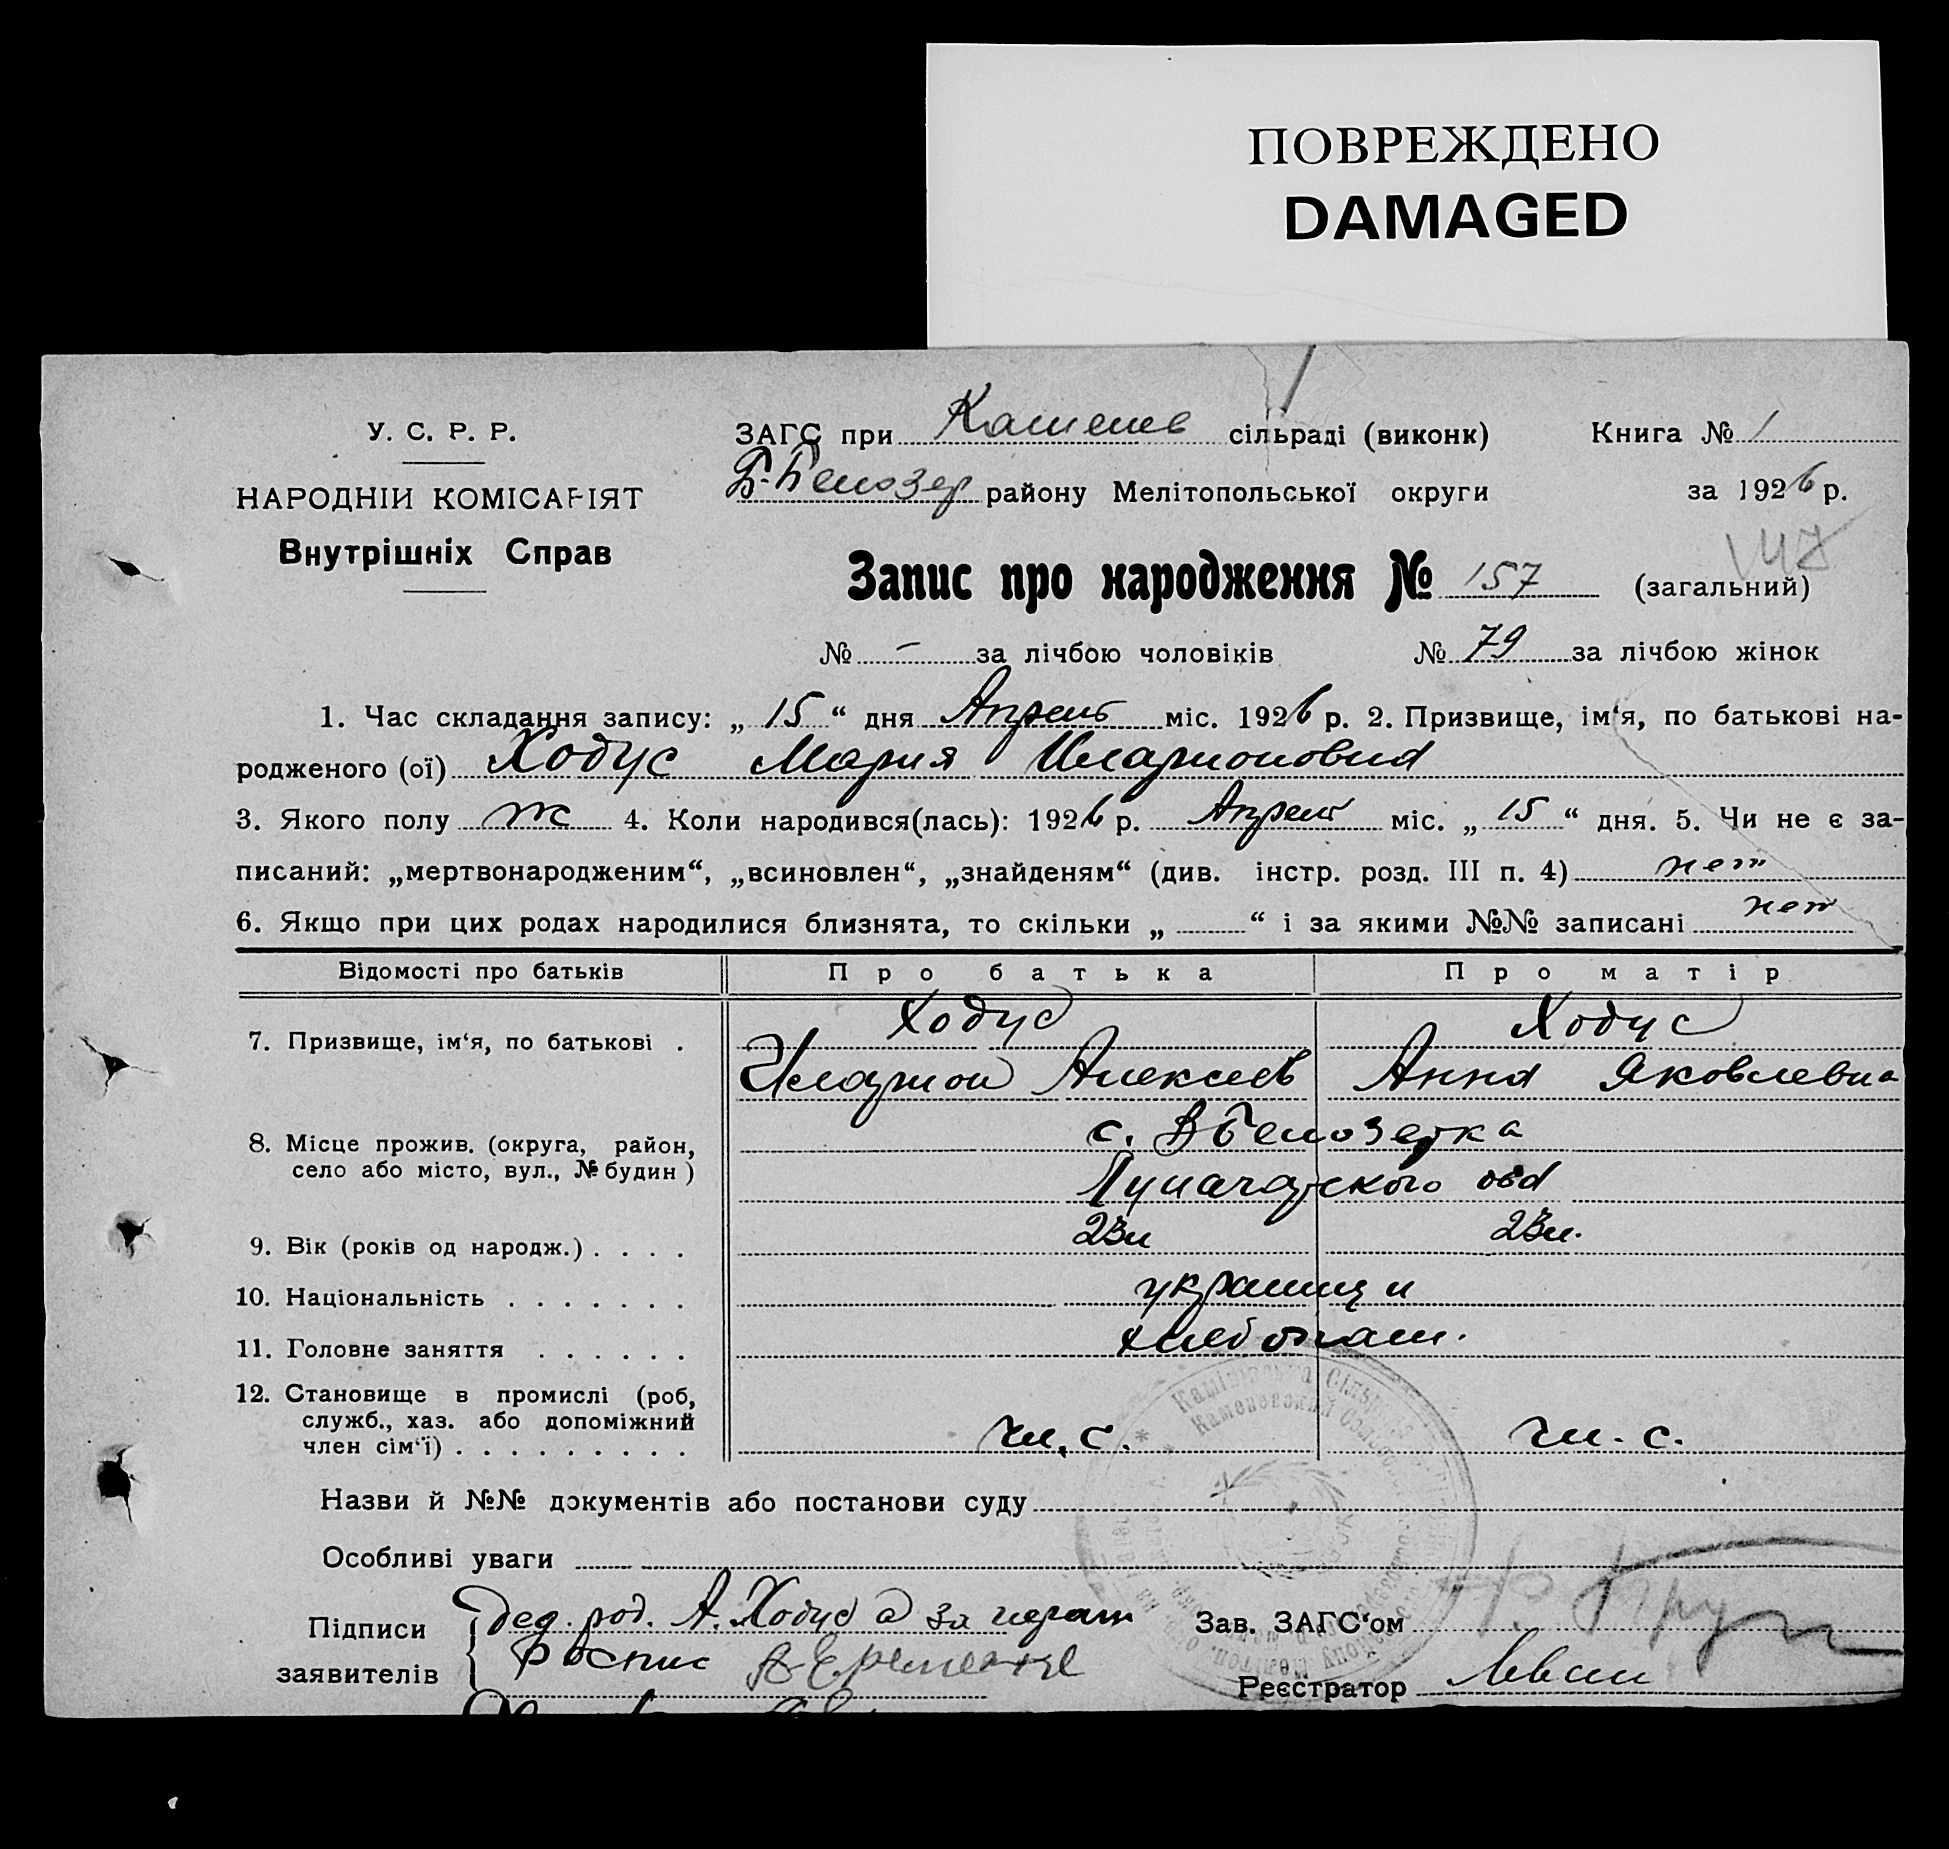 ПОВРЕЖДЕНО
DAMAGED
У. С. Р. Р.
НАРОДНІЙ КОМІСАРІЯТ
Внутрішніх Справ
ЗАГС при Каменев сільраді (виконк) Книга № 1
Б-Белозер району Мелітопольської округи за 1926 р.
147
Запис про народження № 157 (загальний)
№ - за лічбою чоловіків № 79 за лічбою жінок
1. Час складання запису: „ 15 “ дня Апрель міс. 1926 р. 2. Призвище, ім‘я, по батькові на-
родженого (ої) Ходус Мария Иларионовна
3. Якого полу ж 4. Коли народився(лась): 1926 р. Апрель міс. „ 15 “ дня. 5. Чи не є за-
писаний: „мертвонародженим“, „всиновлен“, „знайденям“ (див. інстр. розд. III п. 4) нет
6. Якщо при цих родах народилися близнята, то скільки „ “ і за якими №№ записані нет
Відомості про батьків Про батька Про матір
7. Призвище, ім‘я, по батькові . Ходус Ходус
Иларион Алексеев Анна Яковлевна
8. Місце прожив. (округа, район, село або місто, вул., № будин ) с. В Белозерка
9. Вік (років од народж.) . . . . 23л 23л.
10. Національність . . . . . . . украинци
11. Головне заняття . . . . . . хлебопаш.
12. Становище в промислі (роб,
служб., хаз. або допоміжний
член сім‘ї) . . . . . . . . . чл. с. чл. с.
Назви й №№ документів або постанови суду
Особливі уваги
Підписи дед. род. А. Ходус а за Зав. ЗАГС‘ом
заявителів роспис Реєстратор